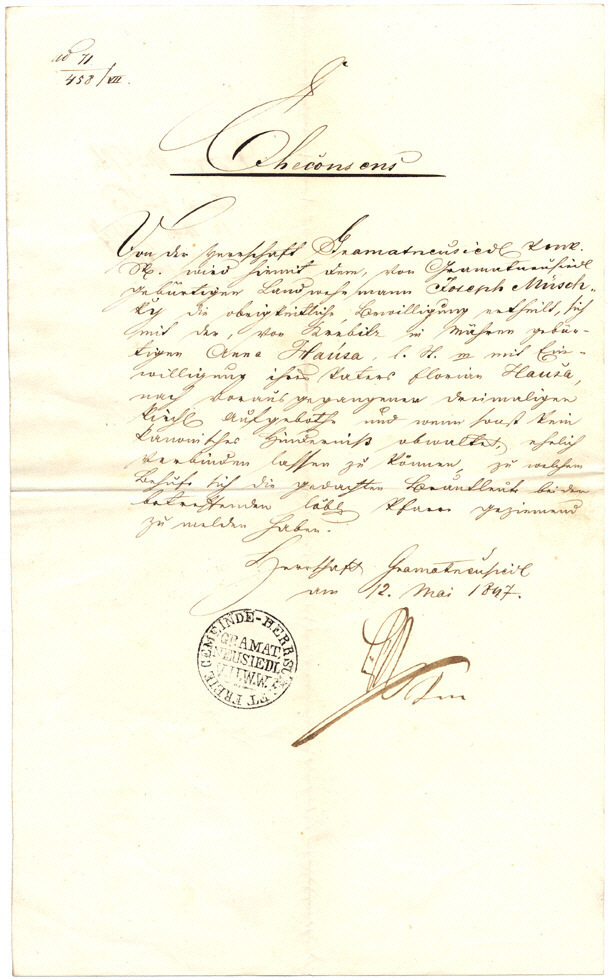 ad 71
458/VII.
Eheconsens
Von der Herrschaft Gramatneusiedl
wird hiemit dem, von Gramatneusiedl
gebürtigen Landwehrmann Joseph Müsch-
ky die obrigkeitliche Bewilligung ertheilt, sich
mit der, von in Mähren gebür-
tigen Anna Hausa, l. St. mit Ein-
willigung ihres Vaters Florian Hausa,
nach vorausgegangenen dreimaligen
kirchl Aufgebothe und wenn sonst kein
kanonisches Hinderniß obwaltet, ehelich
verbinden lassen zu können, zu welchem
Behufe sich die gedachten Brautleute bei den
betreffenden löbl Pfarr geziemend
zu melden haben.
Herrschaft Gramatneusiedl
am 12. Mai 1847.
FREIE GEMEINDE-HERRS:
GRAMAT,
NEUSIEDL
V.U.W.W.